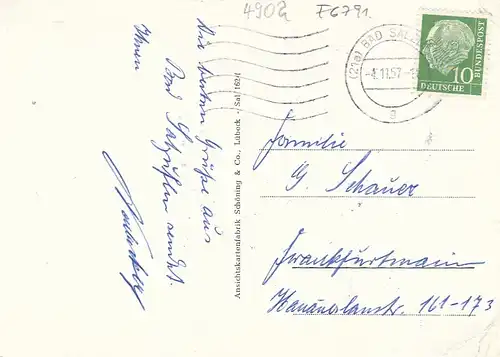 4902 F6791
Die besten Grüße aus
Bad Salzuflen sendet
Ihnen
Ansichtskartenfabrik Schöning & Co., Lübeck
(21a) BAD SALZ
-4.11.57
a
10
DEUTSCHE
BUNDESPOST
Familie
G. Schauer
Frankfurtmain
Hanauerlanstr. 161-173